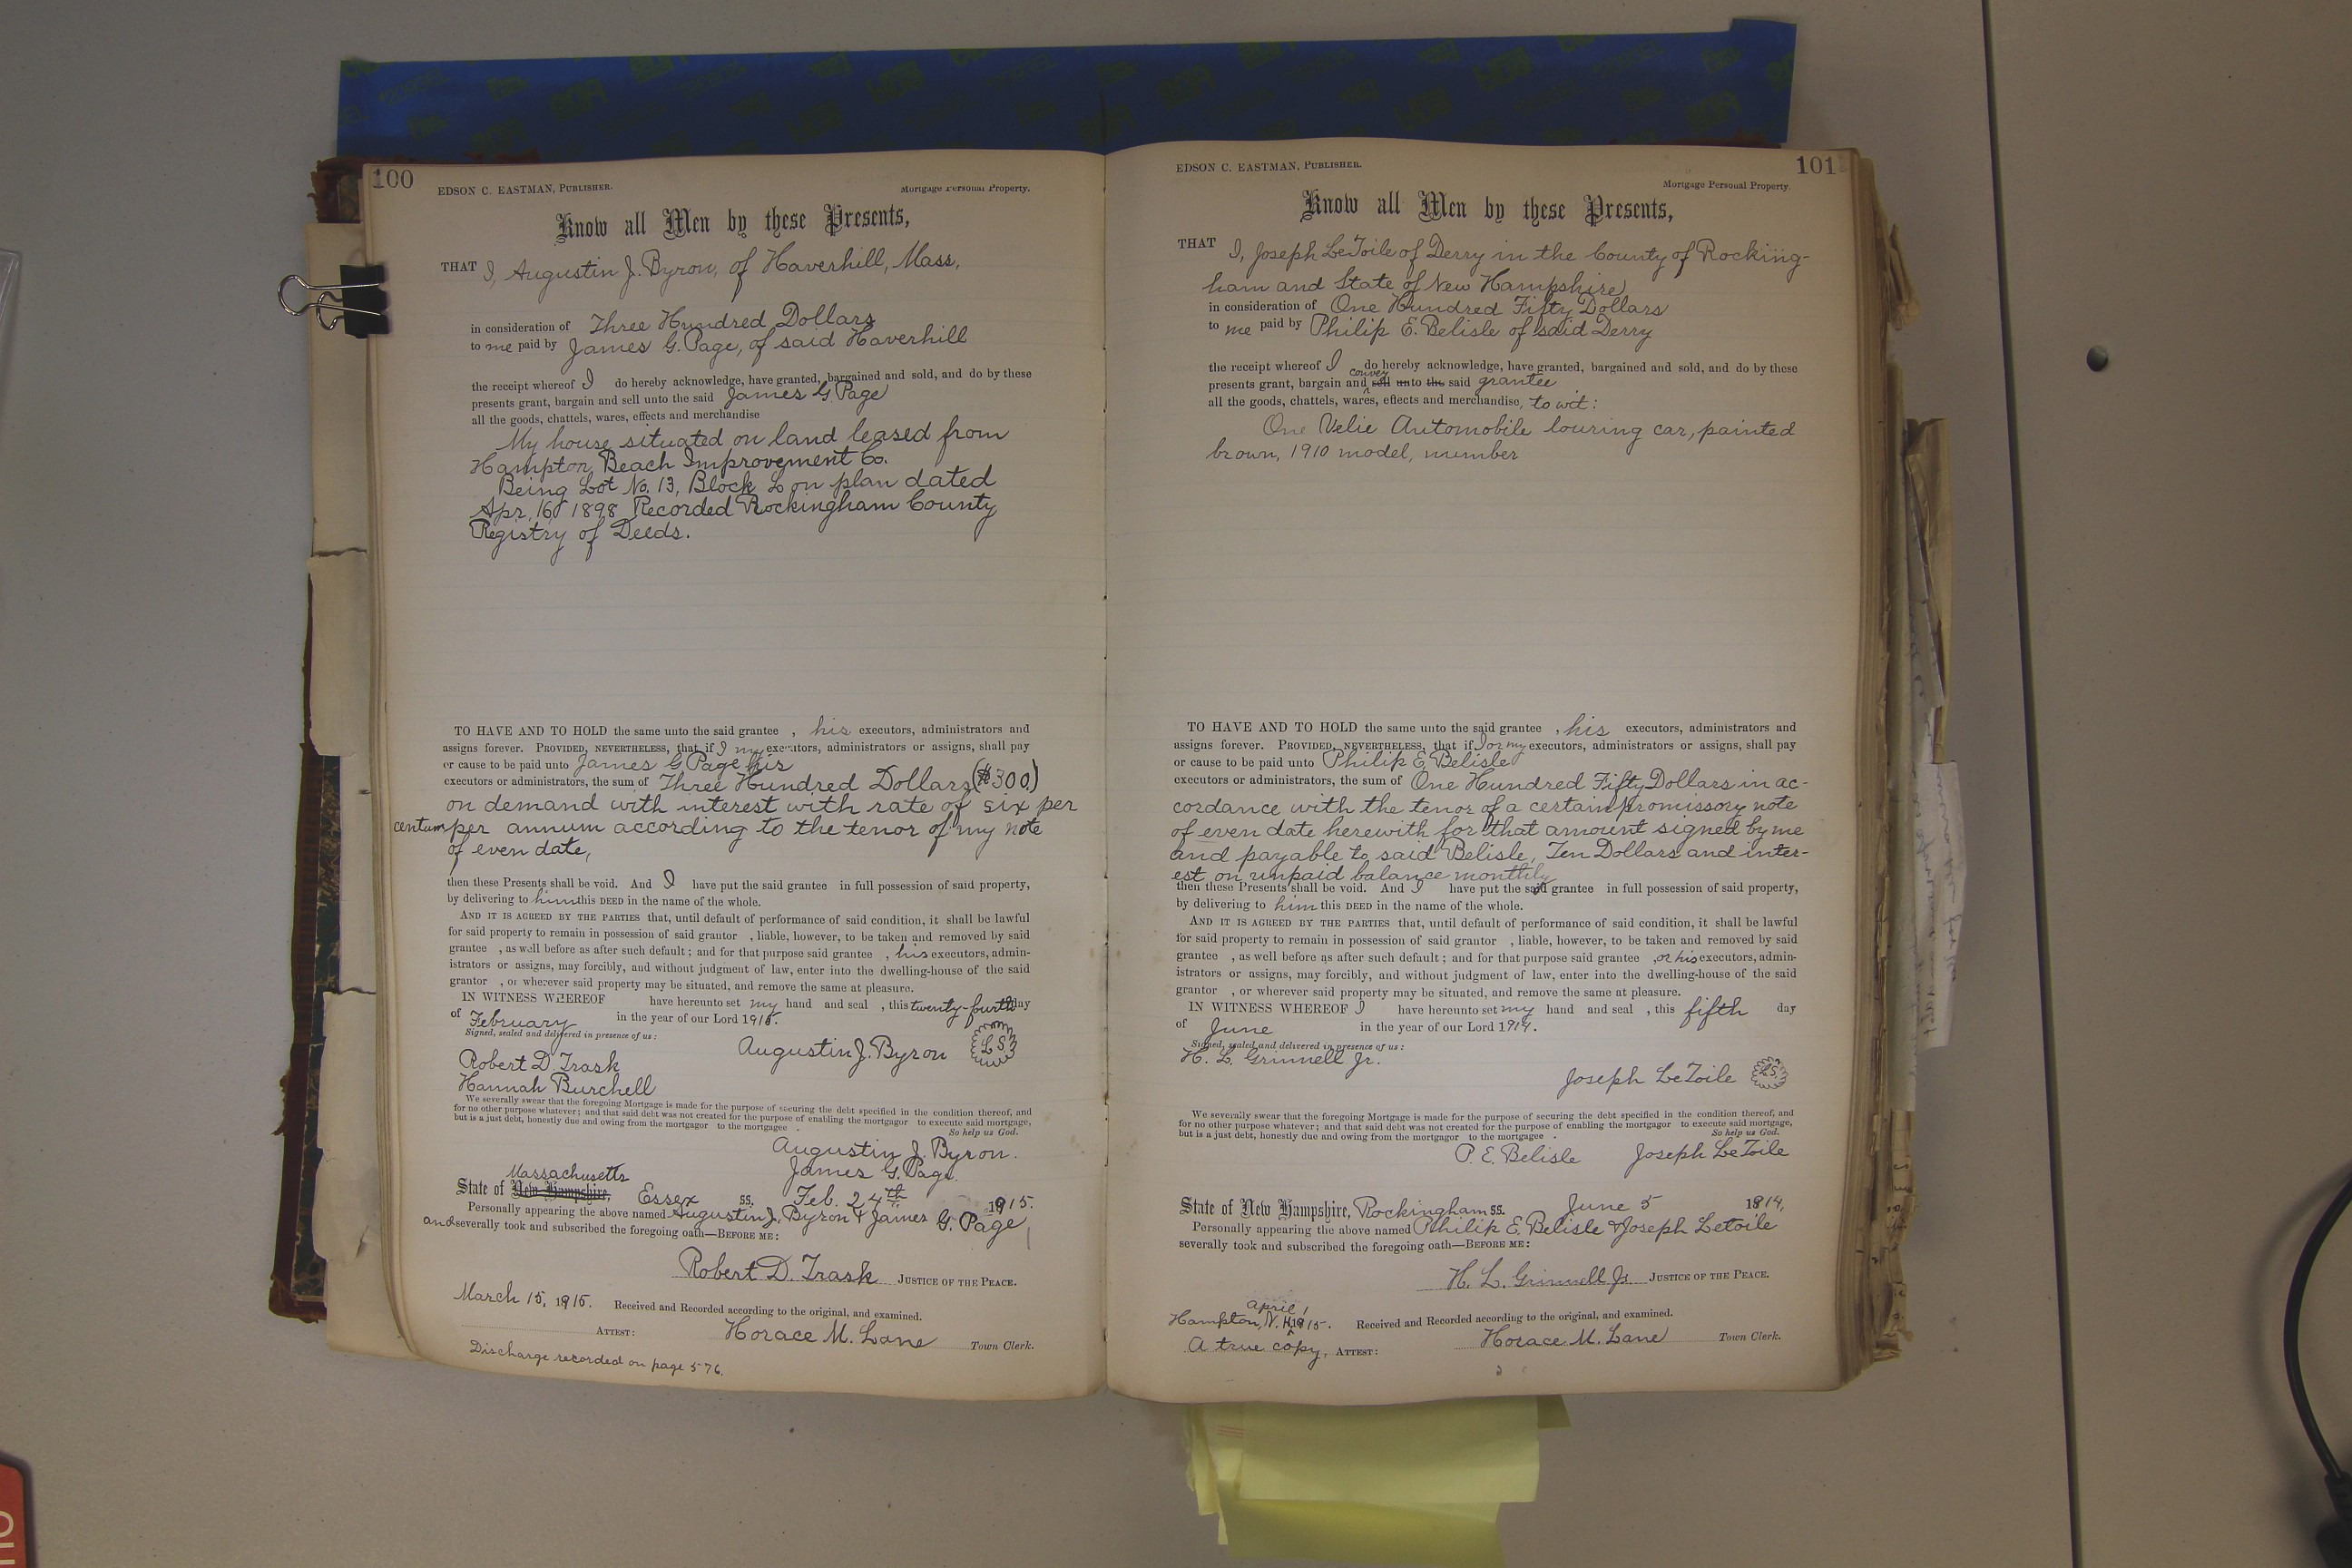 100
EDSON C. EASTMAN, PUBLISHER.
Mortgage Personal Property.
Know all Men by these Presents,
THAT I, Augustin J. Byron, of Haverhill, Mass,
in consideration of Three Hundred Dollars
to me paid by James G. Page, of said Haverhill
the receipt whereof I do hereby acknowledge, have granted, bargained and sold, and do by these
presents grant, bargain and sell unto the said James G. Page
all the goods, chattels, wares, effects and merchandise
My house situated on land leased from
Hampton Beach Improvement Co.
Being Lot No. 13, Block L on plan dated
Apr. 16 1898 Recorded Rockingham County
Registry of Deeds.
TO HAVE AND TO HOLD the same unto the said grantee , his executors, administrators and
assigns forever. PROVIDED, NEVERTHELESS, that if I my executors, administrators or assigns, shall pay
or cause to be paid unto James G Page his
executors or administrators, the sum of Three Hundred Dollars ($300)
on demand with interest with rate of six per
centum per annum according to the tenor of my note
of even date,
then these Presents shall be void. And I have put the said grantee in full possession of said property,
by delivering to him this DEED in the name of the whole.
AND IT IS AGREED BY THE PARTIES that, until default of performance of said condition, it shall be lawful
for said property to remain in possession of said grantor , liable, however, to be taken and removed by said
grantee , as well before as after such default; and for that purpose said grantee , his executors, admin-
istrators or assigns, may forcibly, and without judgment of law, enter into the dwelling-house of the said
grantor , or wherever said property may be situated, and remove the same at pleasure.
IN WITNESS WHEREOF have hereunto set my hand and seal , this twenty-fourth day
of February in the year of our Lord 1915.
Signed, sealed and delivered in presence of us:
Augustin J. Byron L.S.
Robert D. Trask
Hannah Burchell
We severally swear that the foregoing Mortgage is made for the purpose of securing the debt specified in the condition thereof, and
for no other purpose whatever; and that said debt was not created for the purpose of enabling the mortgagor to execute said mortgage,
but is a just debt, honestly due and owing from the mortgagor to the mortgagee .
So help us God.
Augustin J. Byron.
James G. Page.
Massachusetts
State of New Hampshire, Essex ss. Feb. 24th 1915.
Personally appearing the above named Augustin J. Byron & James G. Page
and severally took and subscribed the foregoing oath—BEFORE ME:
Robert D. Trask JUSTICE OF THE PEACE.
March 15, 1915. Received and Recorded according to the original, and examined.
ATTEST: Horace M. Lane Town Clerk.
Discharge recorded on page 576.
101
EDSON C. EASTMAN, PUBLISHER.
Mortgage Personal Property.
Know all Men by these Presents,
THAT I, Joseph LeToile of Derry in the County of Rocking-
ham and State of New Hampshire
in consideration of One Hundred Fifty Dollars
to me paid by Philip E. Belisle of said Derry
the receipt whereof I do hereby acknowledge, have granted, bargained and sold, and do by these
convey
presents grant, bargain and sell unto the said grantee
all the goods, chattels, wares, effects and merchandise, to wit:
One Velie Automobile touring car, painted
brown, 1910 model, number
TO HAVE AND TO HOLD the same unto the said grantee , his executors, administrators and
assigns forever. PROVIDED, NEVERTHELESS, that if I or my executors, administrators or assigns, shall pay
or cause to be paid unto Philip E. Belisle
executors or administrators, the sum of One Hundred Fifty Dollars in ac-
cordance with the tenor of a certain promissory note
of even date herewith for that amount signed by me
and payable to said Belisle, Ten Dollars and inter-
est on unpaid balance monthly
then these Presents shall be void. And I have put the said grantee in full possession of said property,
by delivering to him this DEED in the name of the whole.
AND IT IS AGREED BY THE PARTIES that, until default of performance of said condition, it shall be lawful
for said property to remain in possession of said grantor , liable, however, to be taken and removed by said
grantee , as well before as after such default; and for that purpose said grantee , or his executors, admin-
istrators or assigns, may forcibly, and without judgment of law, enter into the dwelling-house of the said
grantor , or wherever said property may be situated, and remove the same at pleasure.
IN WITNESS WHEREOF I have hereunto set my hand and seal , this fifth day
of June in the year of our Lord 1914.
Signed, sealed and delivered in presence of us:
H. L. Grinnell Jr.
Joseph LeToile L.S.
We severally swear that the foregoing Mortgage is made for the purpose of securing the debt specified in the condition thereof, and
for no other purpose whatever; and that said debt was not created for the purpose of enabling the mortgagor to execute said mortgage,
but is a just debt, honestly due and owing from the mortgagor to the mortgagee .
So help us God.
P. E. Belisle Joseph LeToile
State of New Hampshire, Rockingham ss. June 5 1914,
Personally appearing the above named Philip E. Belisle & Joseph Letoile
severally took and subscribed the foregoing oath—BEFORE ME:
H. L. Grinnell Jr. JUSTICE OF THE PEACE.
April 1
Hampton, N. H. 1915. Received and Recorded according to the original, and examined.
A true copy, ATTEST: Horace M. Lane Town Clerk.